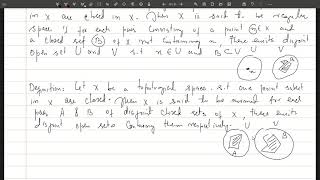 in X are closed in X. Then X is said to be regular
space if for each pair consisting of a point x ∈ X and
a closed set B of X not containing x, there exists disjoint
open set U and V s.t x ∈ U and B ⊂ V
x
U V
Definition: Let X be a topological space s.t one point subset
in X are closed. Then X is said to be normal for each
pair A & B of disjoint closed sets of X, there exists
disjoint open sets containing them respectively.
U V
A B